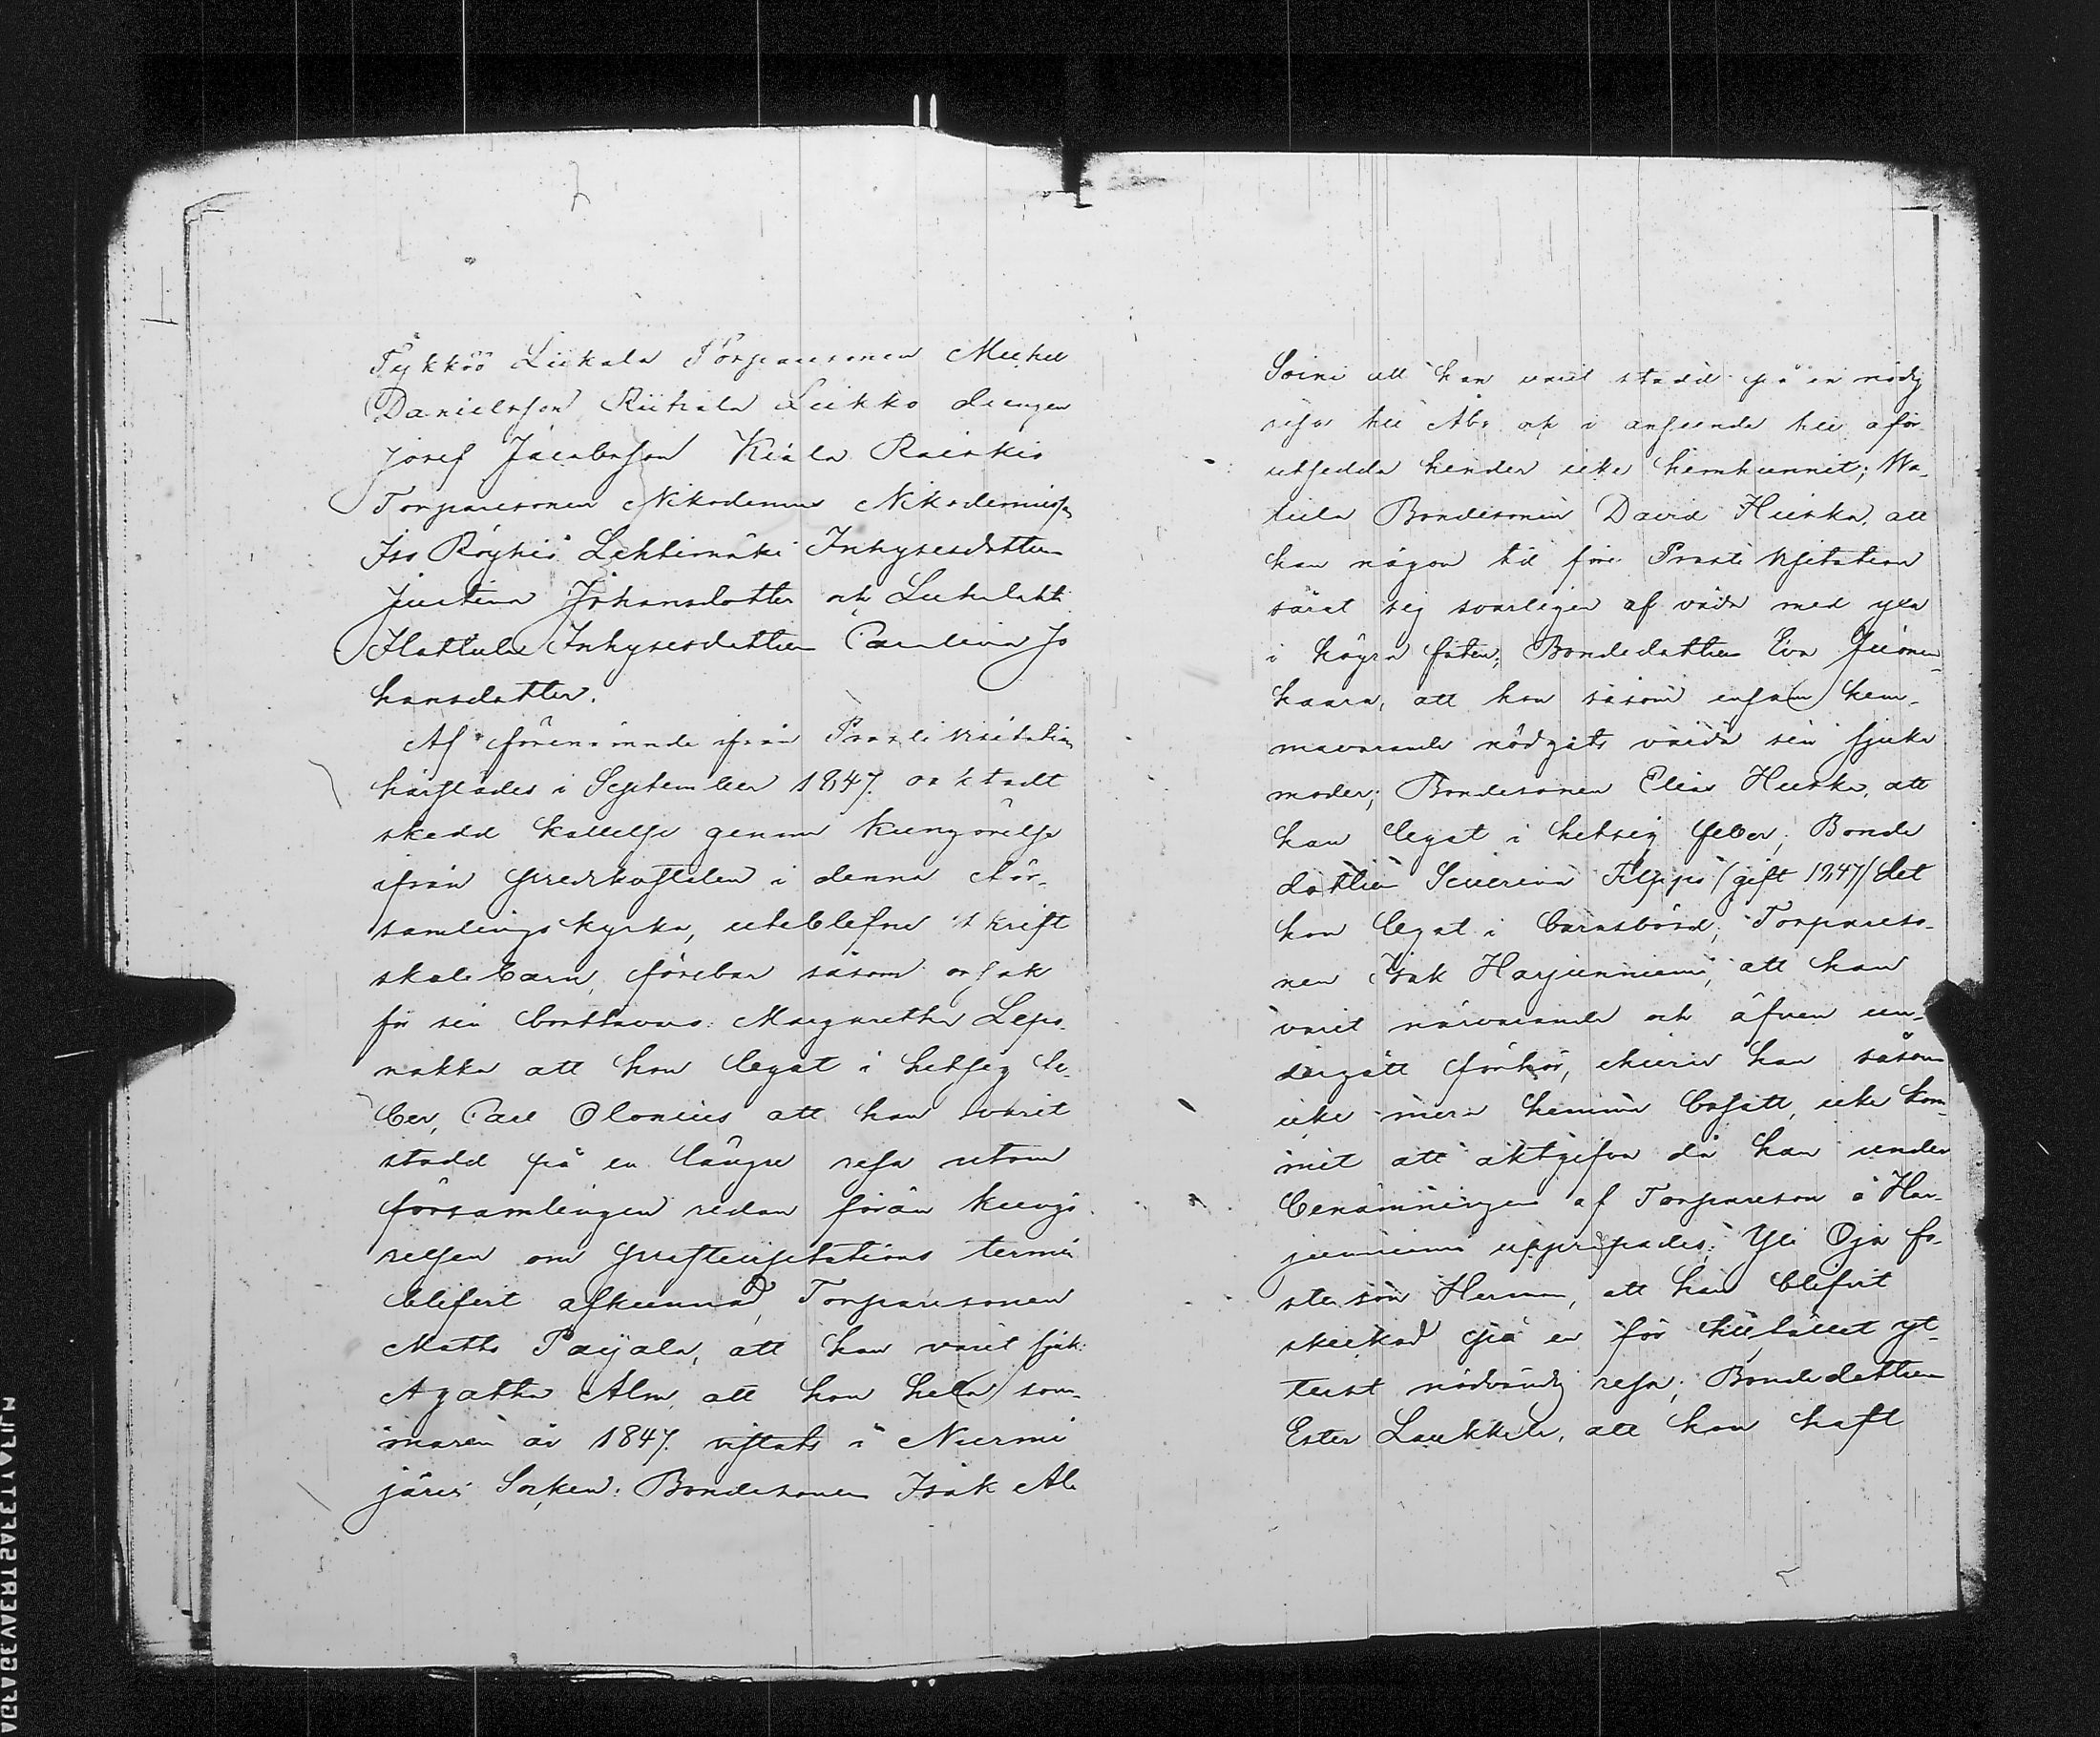 Tykköö Liukala Torparesonen Michel
Danielsson Riihiala Leikko drengen
Josef Jacobsson Kiala Rairkio
Torparesonen Nikodemus Nikodemiss.
Iso Röykiö Lehtimäki Inhysesdottren
Justina Johansdotter och
Hattula Inhysesdottren Paulina Jo
hansdotter.
Af förenämnde ifrån Prosti Visitation
härstädes i September 1847. oaktadt
skedd kallelse genom kungörelse
ifrån predikostolen i denna För-
samlings kyrka, uteblefne skrift
skolebarn, förebar såsom orsak
för sin bortovaro: Margaretha Lepo-
nokka att hon legat i hetsig fe-
ber, Carl Olonius att han varit
stadd på en längre resa utom
församlingen redan förän kungö
relsen om prostvisitations termin
blifvit afkunnad, Torparesonen
Matts Payala, att han varit sjuk:
Agatha Alm, att hon hela som-
maren år 1847. vistats i Nurmi
järvi Socken: Bondesonen Isak Ala
Soini att han varit stadd på en nödig
resa till Åbo och i anseende till oför
utsedda hinder icke hemhunnit;
Bondesonen David Hiirka, att
han någon tid före Prosti Visitation
sårat sig svårligen af våda med yxa
i högra foten; Bondedottren Eva Juonen-
haara, att hon såsom ensam hem-
mavarande nödgats vårda sin sjuka
moder; Bondesonen Elias Hiirka, att
han legat i hetsig feber; Bonde
dottren Severina Filppo (gift 1847) det
hon legat i barnsbörd; Torpareso-
nen Isak Harjunniemi, att han
varit närvarande och äfven un-
dergått förhör, ehuru han såsom
icke mera hemma besatt, icke kom-
mit att aktgifva då han under
benämningen af Torpareson å Har-
junniemi uppropades; Yli Oja fo-
sterson Herman, att han blefvit
skickad på en för hushållet yt-
terst nödvändig resa; Bondedottren
Ester Laukkola, att hon haft